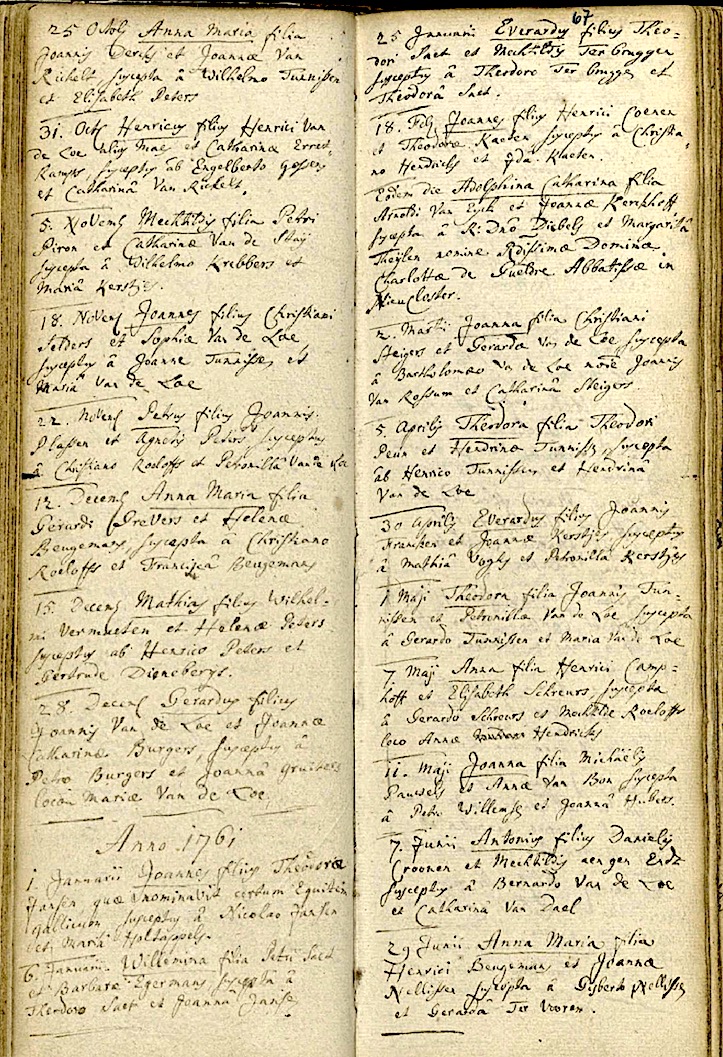 25 Octob Anna Maria filia
Joannis Dercks et Joannæ Van
Rickelt suscepta â Wilhelmo Tunnissen
et Elisabeth Peters
31. Octb Henricus filius Henrici Van
de Loe alias Maes et Catharinæ
Kamps, susceptus ab Engelberto
et Catharinâ Van Rickelt.
5. Novemb Mechtildis filia Petri
Piron et Catharinæ Van de
suscepta â Wilhelmo Krebbers et
Mariâ Kerstjes.
18. Novemb Joannes filius Christiani
Selders et Sophiæ Van de Loe
susceptus â Joanne Tunnissen et
Mariâ Van de Loe
22. Novemb Petrus filius Joannis
Plassen et Agnetis Peters susceptus
â Christiano Roeloffs et Petronillâ Van de Loe
12. Decemb Anna Maria filia
Gerardi Grevers et Helenæ
Beugemans suscepta â Christiano
Roeloffs et Franciscâ Beugemans
15. Decemb Mathias filius Wilhel-
mi Vermeeten et Helenæ Peters
susceptus ab Henrico Peters et
Gertrude
28 Decemb Gerardus filius
Joannis Van de Loe et Joannæ
Catharinæ Burgers, susceptus â
Petro Burgers et Joannâ Gruiters
loco Mariæ Van de Loe,
Anno 1761
1. Januarii Joannes filius Theodoræ
Jansen quæ nominavit certum Equitem
Gallicum susceptus â Nicolao Jansen
et Mariâ
6. Januarii. Willemina filia Petri Saet
et Barbaræ Egermans suscepta â
Theodoro Saet et Joanna Jansen
67
25 Januarii Everardus filius Theo-
dori Saet et Mechtildis Ter bruggen
susceptus â Theodoro Ter bruggen et
Theodorâ Saet.
18. Feb Joannes filius Henrici Coenen
et Theodoræ Kaeten susceptus â Christia-
no Hendricks et Kaeten.
Eodem die Adolphina Catharina filia
Arnoldi Van Eyck et Joannæ Kerckhoff
suscepta â R. Dno Diebels et Margaritâ
Theylen nomine Rdissimæ Dominæ
Charlottæ de Guelre Abbatissæ in
Nieu Closter.
2. Martii Joanna filia Christiani
Steigers et Gerardæ Van de Loe suscepta
â Bartholomæo Van de Loe noie Joannis
Van Rossum et Catharinâ Steigers
5 Aprilis Theodora filia Theodori
Peun et Hendrinæ Tunnissen suscepta
ab Henrico Tunnissen et Hendrinâ
Van de Loe
30 Aprilis Everardus filius Joannis
Francken et Joannæ Kerstjes susceptus
â Mathiâ Voghs et Petronilla Kerstjes
1 Maji Theodora filia Joannis Tun-
nissen et Petronillæ Van de Loe suscepta
â Gerardo Tunnissen et Maria Van de Loe
7 Maji Anna filia Henrici Camp-
hoff et Elisabeth Schreurs suscepta
â Gerardo Schreurs et Mechtilde Roeloffs
loco Annæ Hendricks
11. Maji Joanna filia Michaëlis
Pauwels et Annæ Van Bon suscepta
â Petro Willemsen et Joannâ Hubers.
7. Junii Antonius filius Danielis
Croonen et Mechtildis aen gen Endt
susceptus â Bernardo Van de Loe
et Catharina Van Dael
29 Junii Anna Maria filia
Henrici Beugemans et Joannæ
Nellissen suscepta â Gisberto Nellissen
et Gerarda Ter Vooren.